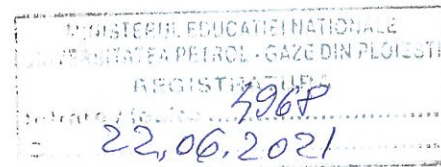 MINISTERUL EDUCAȚIEI NAȚIONALE
UNIVERSITATEA PETROL - GAZE DIN PLOIEȘTI
REGISTRATURA
4968
22.06.2021